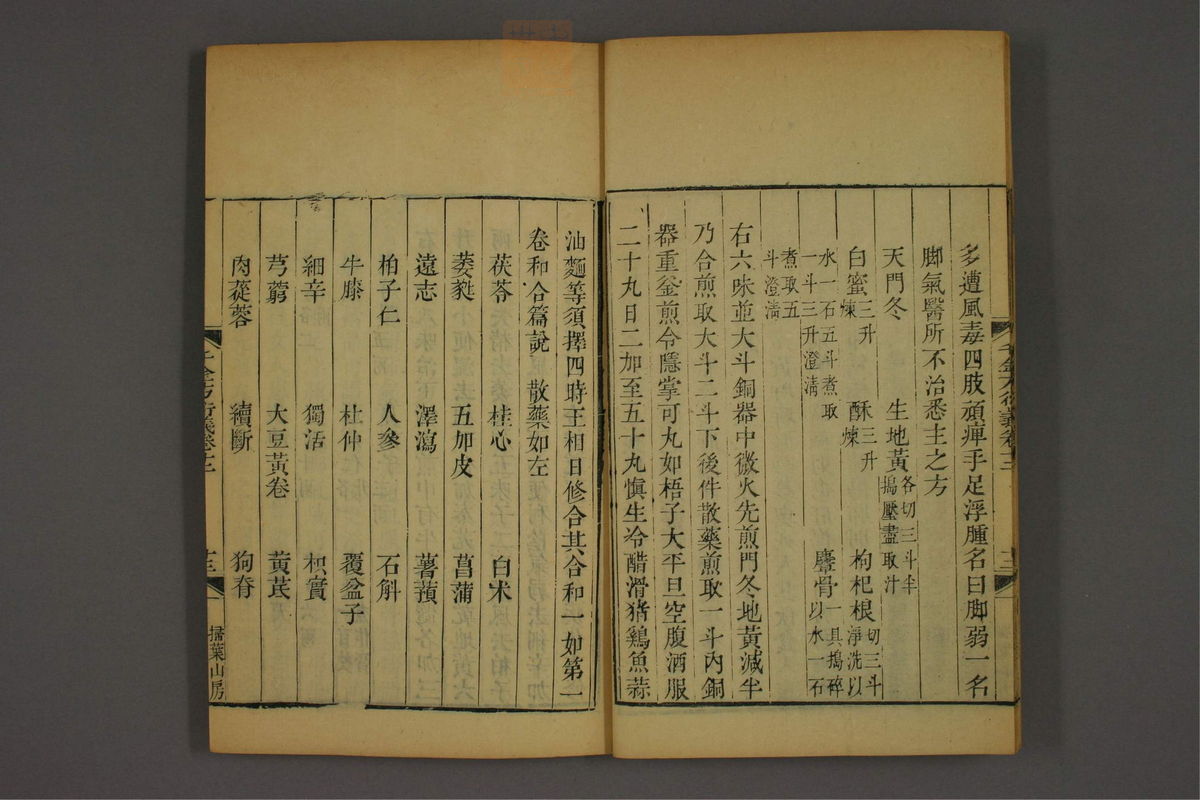 多遭風毒四肢頑痺手足浮腫名曰脚弱一名
脚氣醫所不治悉主之方
天門冬 生地黃各切三斗半搗壓盡取汁 枸杞根切三斗淨洗以
水一石五斗煮取一斗三升澄淸
白蜜三升煉 酥三升煉 麞骨一具搗碎以水一石
煮取五斗澄淸
右六味並大斗銅器中微火先煎門冬地黃減半
乃合煎取大斗二斗下後件散藥煎取一斗內銅
器重釜煎令隱掌可丸如梧子大平旦空腹酒服
二十丸日二加至五十丸愼生冷醋滑猪鷄魚蒜
油麵等須擇四時王相日修合其合和一如第一
卷和合篇說 散藥如左
茯苓 桂心 白朮
萎蕤 五加皮 菖蒲
遠志 澤瀉 薯蕷
柏子仁 人參 石斛
牛膝 杜仲 覆盆子
細辛 獨活 枳實
芎藭 大豆黃卷 黃芪
肉蓯蓉 續斷 狗脊
千金方衍義卷十二
十三
掃葉山房